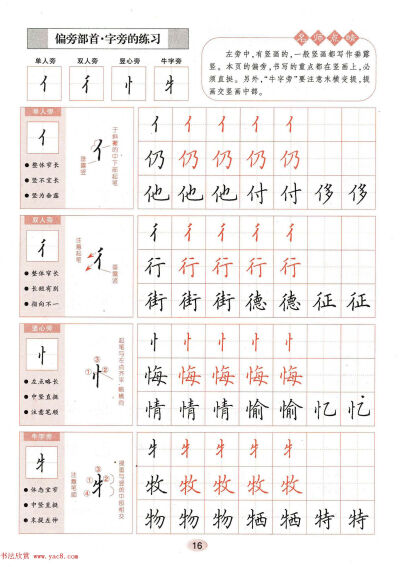 偏旁部首·字旁的练习
单人旁 双人旁 竖心旁 牛字旁
亻 彳 忄 牜
名师点睛
左旁中，有竖画的，一般竖画都写作垂露
竖。本页的偏旁，书写的重点都在竖画上，必
须直挺。另外，“牛字旁”要注意木横变提，提
画交竖画中部。
单人旁
亻
整体窄长
竖不宜长
竖为垂露
于斜撇的中下部起笔
垂露竖
亻
亻 亻 亻 亻 亻
仍 仍 仍 仍 仍
他 他 他 付 付 侈 侈
双人旁
彳
整体窄长
长短有别
指向不一
注意起笔
垂露竖
彳
彳 彳 彳 彳 彳
行 行 行 行 行
街 街 街 德 德 征 征
竖心旁
忄
左点略长
中竖直挺
注意笔顺
起笔与左点齐平，略横向
①忄②③
忄 忄 忄 忄 忄
悔 悔 悔 悔 悔
情 情 情 愉 愉 忆 忆
牛字旁
牜
体态宜窄
中竖直挺
末提左伸
注意笔顺
提画与竖的中部相交
①②③④
牜
牜 牜 牜 牜 牜
牧 牧 牧 牧 牧
物 物 物 牺 牺 特 特
16
书法欣赏
www.yac8.com